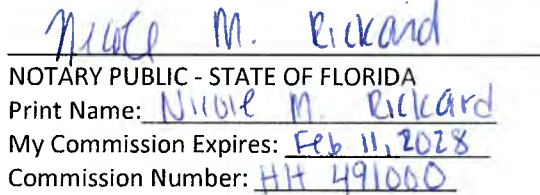 Nicole M. Rickard
NOTARY PUBLIC - STATE OF FLORIDA
Print Name: Nicole M. Rickard
My Commission Expires: Feb 11, 2028
Commission Number: HH 491000